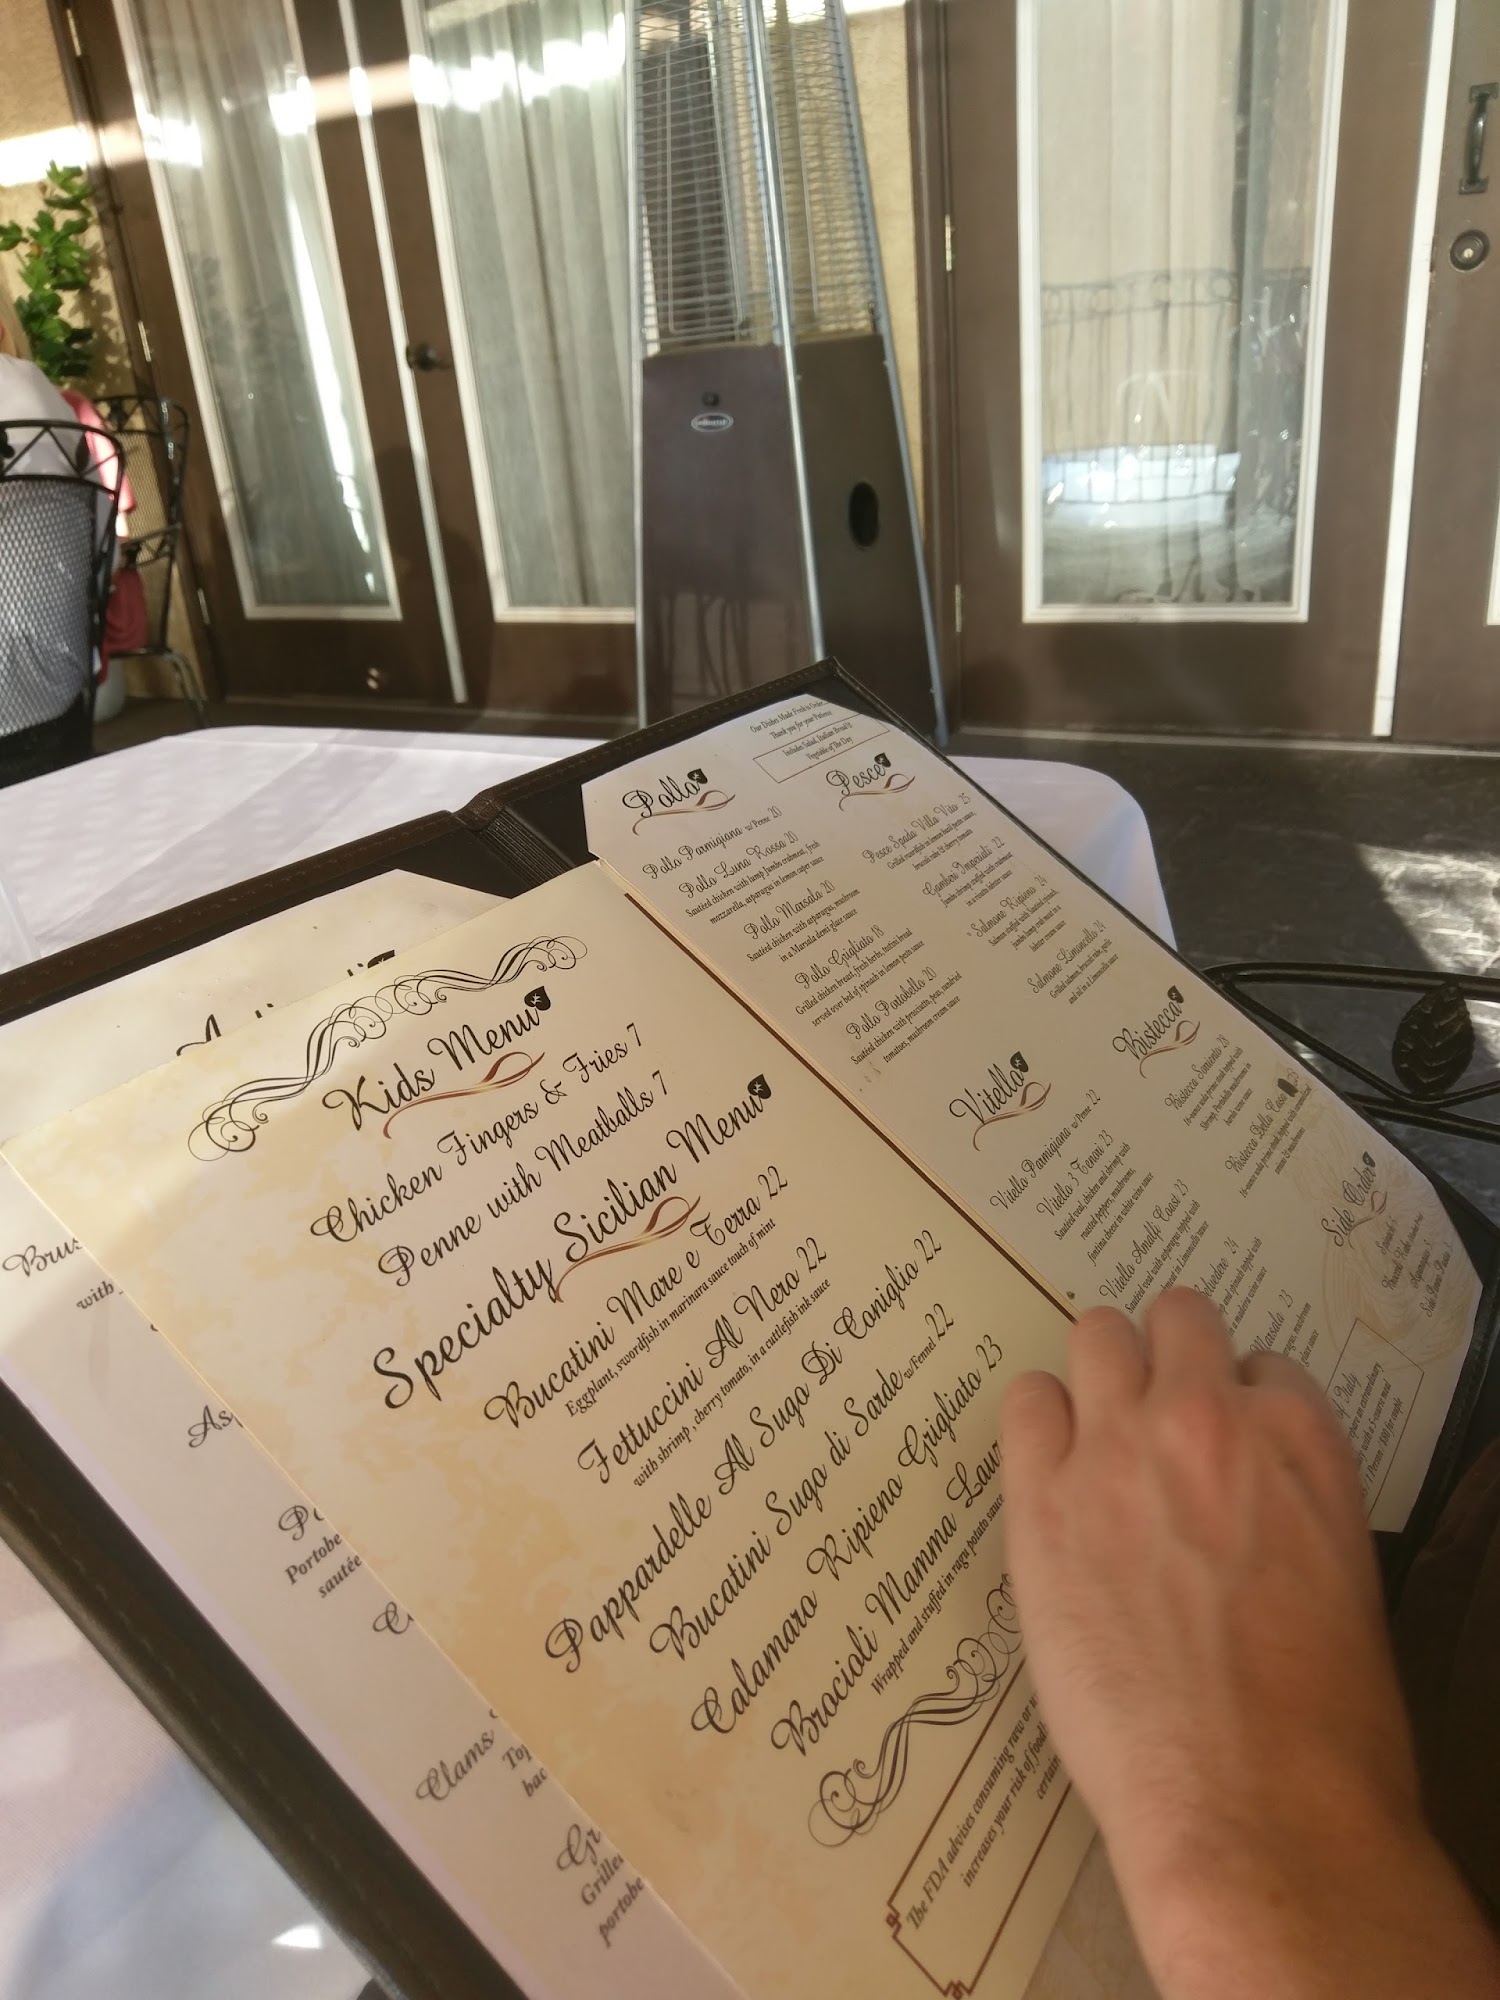 Kids Menu
Chicken Fingers & Fries 7
Penne with Meatballs 7
Specialty Sicilian Menu
Bucatini Mare e Terra 22
Eggplant, swordfish in marinara sauce touch of mint
Fettuccini Al Nero 22
with shrimp, cherry tomato, in a cuttlefish ink sauce
Pappardelle Al Sugo Di Coniglio 22
Bucatini Sugo di Sarde w/Fennel 22
Calamaro Ripieno Grigliato 23
Brocioli Mamma Laur
Wrapped and stuffed in ragu potato sauce
The FDA advises consuming raw or u
increases your risk of food
certain
Our Dishes Made Fresh to Order...
Thank you for your Patience
Includes Salad, Italian Bread &
Vegetable of The Day
Pollo
Pollo Parmigiana w/Penne 20
Pollo Luna Rossa 20
Sautéed chicken with lump Jumbo crabmeat, fresh
mozzarella, asparagus in lemon caper sauce
Pollo Marsala 20
Sautéed chicken with asparagus, mushroom
in a Marsala demi glace sauce
Pollo Grigliato 18
Grilled chicken breast, fresh herbs, tuscan bread
served over bed of spinach in lemon pesto sauce
Pollo Portobello 20
Sautéed chicken with prosciutto, peas, sundried
tomatoes, mushroom cream sauce
Pesce
Pesce Spada Villa Vito 25
Grilled swordfish in lemon basil pesto sauce,
broccoli rabe & cherry tomato
Gamberi Imperiali 22
Jumbo shrimp stuffed with crabmeat
in a risotto lobster sauce
Salmone Ripieno 24
Salmon stuffed with sautéed spinach,
jumbo lump crab meat in a
lobster cream sauce
Salmone Limoncello 24
Grilled salmon, broccoli rabe, garlic
and oil in a Limoncello sauce
Vitello
Vitello Parmigiana w/Penne 22
Vitello 3 Tenori 23
Sautéed veal, chicken and shrimp with
roasted peppers, mushrooms,
fontina cheese in white wine sauce
Vitello Amalfi Coast 23
Sautéed veal with asparagus topped with
in Limoncello sauce
Belvedere 24
and spinach topped with
in a madera wine sauce
Marsala 23
Bistecca
Bistecca Sorrento 28
16-ounce
Shrimp, Portobello mushrooms in
barolo wine sauce
Bistecca Della Casa
Side Order
Spinach
Asparagus 5
Side Penne Pasta
of Italy
1 Person
Brus
with
As
Portobe
sautée
Clams
Top
bac
Gr
Grilled
portobe